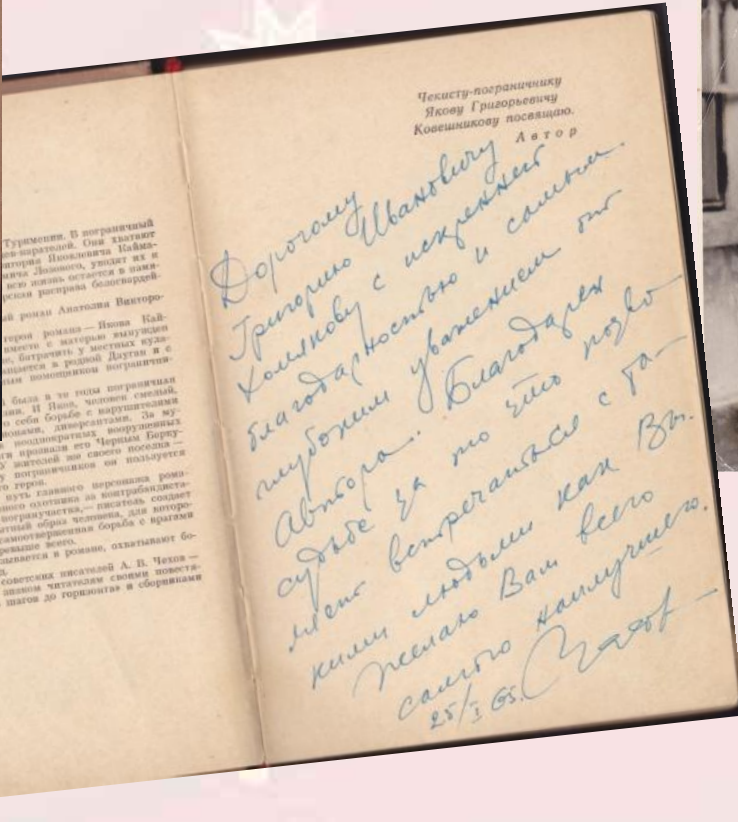 Туркмении. В пограничный
Они хватают
Якова Григорьевича Кайма-
Лозового, уводят их и
всю жизнь остается в памя-
расправа белогвардей-
роман Анатолия Викторо-
героя романа — Якова Кай-
вместе с матерью вынужден
батрачить у местных кула-
в родной Дауган и с
помощником погранични-
была в те годы пограничная
И Яков, человек смелый,
себя борьбе с нарушителями
диверсантами. За му-
неоднократных вооруженных
прозвали его Черным Берку-
У жителей же своего поселка —
пограничников он пользуется
героя.
путь главного персонажа рома-
охотника за контрабандиста-
погранучастка,— писатель создает
образ человека, для которо-
самоотверженная борьба с врагами
превыше всего.
в романе, охватывают бо-
советских писателей А. В. Чехов —
знаком читателям своими повестя-
шагов до горизонта» и сборниками
Чекисту-пограничнику
Якову Григорьевичу
Ковешникову посвящаю.
Автор
Дорогому
Григорию Ивановичу
Хомякову с искренней
благодарностью и самым
глубоким уважением от
Автора. Благодарен
судьбе за то что позво-
ляет встречаться с та-
кими людьми как Вы.
Желаю Вам всего
самого наилучшего.
25/I 65.